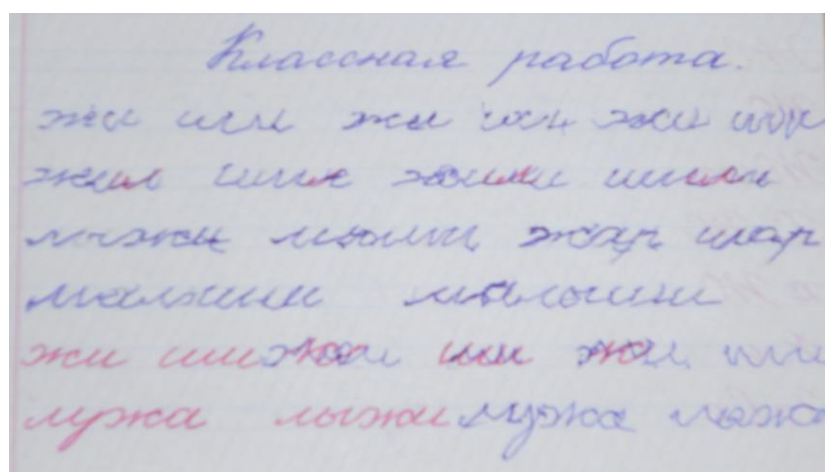 Классная работа.
жи ши жи ши жи ши
жил шил жили шили
лыжи мыши жар шар
малыши малыши
жи ши жи ши жи ши
лужа лыжи лужа лыжи